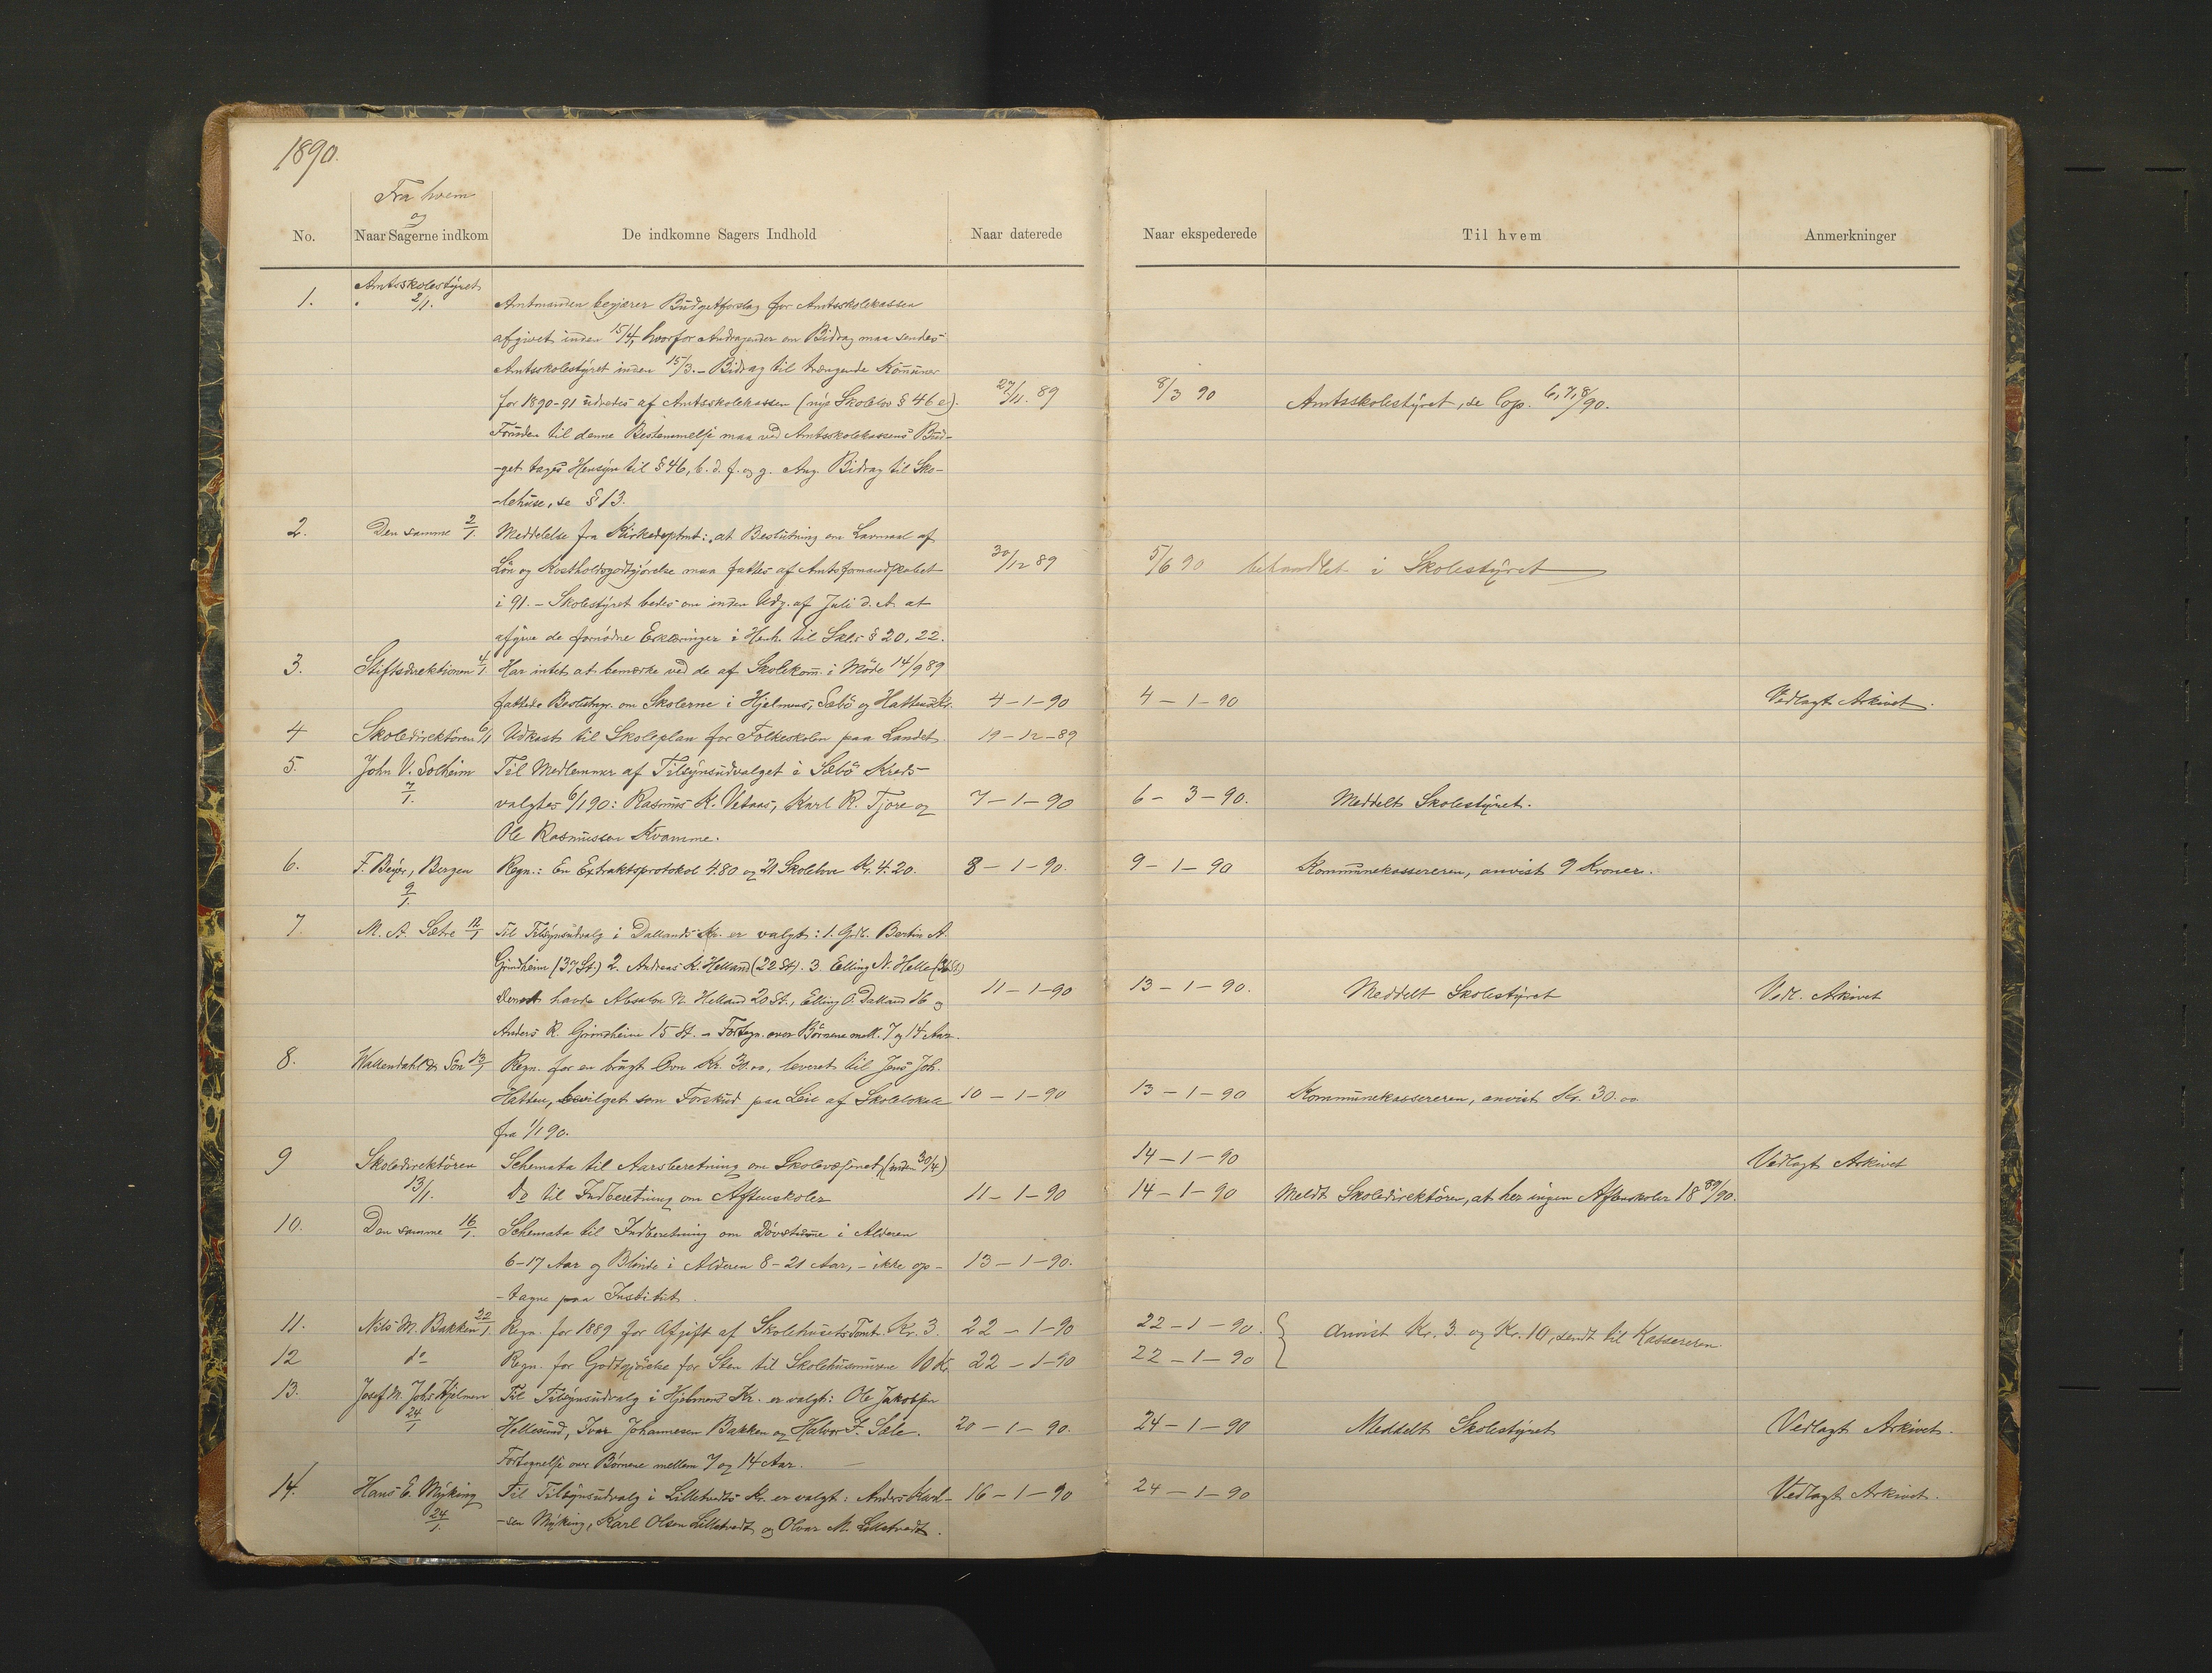 1890.
Fra hvem
og
No. Naar Sagerne indkom De indkomne Sagers Indhold Naar daterede Naar ekspederede Til hvem Anmerkninger
Amtsskolestyret
1. 2/1. Amtmanden begjærer Budgetforslag for Amtsskolekassen
afgivet inden 15/4, hvorfor Andragender om Bidrag maa sendes
Amtsskolestyret inden 15/3. – Bidrag til trængende Kommuner
for 1890-91 udredes af Amtsskolekassen (nye Skolelov § 46 e). 27/11. 89 8/3 90 Amtsskolestyret, se Cop. 6,7,8/90.
Foruden til denne Bestemmelse maa ved Amtsskolekassens Bud-
-get tages Hensyn til § 46, b. d. f. og g. Ang. Bidrag til Sko-
-lehuse, se § 13.
2. Den samme 2/1. Meddelelse fra Kirkedeptmt: at Beslutning om Lavmaal af
Løn og Kostholdsgodtgjørelse maa fattes af Amtsformandskabet 30/12 89 5/6 90 behandlet i Skolestyret
i 91. – Skolestyret bedes om inden Udg. af Juli d. A. at
afgive de fornødne Erklæringer i Henh. til § 20, 22.
3. Stiftsdirektionen 4/1. Har intet at bemærke ved de af Skolekom. i Møde 14/9 89
fattede Beslutngr. om Skolerne i Hjelmens, Sæbø og Hattens Kr. 4-1-90 4-1-90 Vedlagt Arkivet.
4 Skoledirektøren 6/1 Udkast til Skoleplan for Folkeskolen paa Landet. 19-12-89
5. John V. Solheim Til Medlemmer af Tilsynsudvalget i Sæbø Kreds
7/1. valgtes 6/1 90: Rasmus K. Vetaas, Karl R. Tjore og 7-1-90 6-3-90. Meddelt Skolestyret.
Ole Rasmussen Kvamme.
6. F. Beyer, Bergen Regn.: En Extraktsprotokol 4.80 og 21 Skolelove Kr. 4.20. 8-1-90. 9-1-90 Kommunekassereren, anvist 9 Kroner.
9/1.
7 M. A. Sætre 12/1 Til Tilsynsudvalg i Dallands Kr. er valgt: 1. Bertin A.
Grindheim (37 St.) 2. Andreas K. Helland (22 St). 3. Elling N. Helle
havde Absalon N. Helland 20 St., Elling O. Dalland 16 og 11-1-90 13-1-90. Meddelt Skolestyret Vedl. Arkivet
Anders R. Grindheim 15 St. – Fortegn. over Børnene mell. 7 og 14 Aar.
8. Wallendahl & Søn 13/1 Regn. for en brugt Ovn Kr. 30.00, leveret til Jens Joh.
Hatten, bevilget som Forskud paa Leie af Skolelokale 10-1-90 13-1-90 Kommunekassereren, anvist Kr. 30.00
fra 1/1 90.
9 Skoledirektøren Schemata til Aarsberetning om Skolevæsenet (inden 30/4) 14-1-90 Vedlagt Arkivet
13/1. Do til Indberetning om Aftenskoler 11-1-90 14-1-90 Meldt Skoledirektøren, at her ingen Aftenskoler 18 89/90.
10. Den samme 16/1. Schemata til Indberetning om Døvstumme i Alderen
6-17 Aar og Blinde i Alderen 8-21 Aar, – ikke op- 13-1-90.
-tagne paa Institut.
11. Nils M. Bakken 22/1. Regn. for 1889 for Afgift af Skolehusets Tomt Kr. 3. 22-1-90 22-1-90. Anvist Kr. 3. og Kr. 10, sendt til Kassereren.
12 do Regn. for Godtgjørelse for Sten til Skolehusmurene 10 Kr. 22-1-90 22-1-90
13. Josef M. Johs Hjelmen Til Tilsynsudvalg i Hjelmens Kr. er valgt: Ole Jakobsen
24/1 Hellesund, Ivar Johannesen Bakken og Halvor F. Sæle. 20-1-90. 24-1-90 Meddelt Skolestyret Vedlagt Arkivet.
Fortegnelse over Børnene mellem 7 og 14 Aar.
14. Hans E. Myking Til Tilsynsudvalg i Lilletvedts Kr. er valgt: Anders Karl- 16-1-90 24-1-90 Vedlagt Arkivet.
24/1. -sen Myking, Karl Olsen Lilletvedt og Olvar M. Lilletvedt.